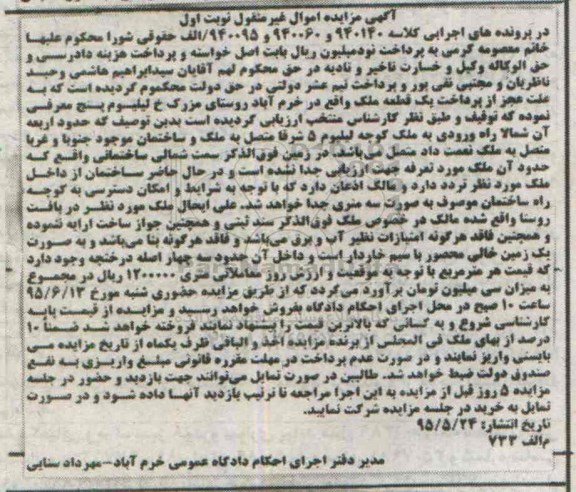 آگهی مزایده اموال غیرمنقول نوبت اول
در پرونده های اجرایی کلاسه ۹۴۰۱۴۰ و ۹۴۰۰۶۰ و ۹۴۰۰۹۵/الف حقوقی شورا محکوم علیها
خانم معصومه کرمی به پرداخت نودمیلیون ریال بابت اصل خواسته و پرداخت هزینه دادرسی و
حق الوکاله وکیل و خسارت تاخیر و تادیه در حق محکوم لهم آقایان سیدابراهیم هاشمی وحید
ناظریان و مجتبی نقی پور و پرداخت نیم عشر دولتی در حق دولت محکوم گردیده است که به
علت عجز از پرداخت یک قطعه ملک واقع در خرم آباد روستای مزرک خ لیلیوم پنج معرفی
نموده که توقیف و طبق نظر کارشناس منتخب ارزیابی گردیده است بدین توصیف که حدود اربعه
آن شمالا راه ورودی به ملک کوچه لیلیوم ۵ شرقا متصل به ملک و ساختمان موجود جنوبا و غربا
متصل به ملک نعمت داد متصل می‌باشد. در زمین فوق‌الذکر سمت شمالی ساختمانی واقع که
حدود آن ملک مورد تعرفه جهت ارزیابی جدا نشده است و در حال حاضر ساختمان از داخل
ملک مورد نظر تردد دارد و مالک اذعان دارد که با توجه به شرایط و امکان دسترسی به کوچه
راه ساختمان موصوف به صورت سه متری جدا خواهد شد. علی ایحال ملک مورد نظر در بافت
روستا واقع شده مالک در خصوص ملک فوق‌الذکر سند ثبتی و همچنین جواز ساخت ارایه ننموده
و همچنین فاقد هرگونه امتیازات نظیر آب و برق می‌باشد و فاقد هرگونه بنا می‌باشد و به صورت
یک زمین خالی محصور با سیم خاردار است و داخل آن حدود سه چهار اصله درختچه وجود دارد
که قیمت هر مترمربع با توجه به موقعیت و ارزش روز معاملاتی متری ۱۲۰۰۰۰۰ ریال در مجموع
به میزان سی میلیون تومان برآورد می‌گردد که از طریق مزایده حضوری شنبه مورخ ۹۵/۶/۱۳
ساعت ۱۰ صبح در محل اجرای احکام دادگاه بفروش خواهد رسید و مزایده از قیمت پایه
کارشناسی شروع و به کسانی که بالاترین قیمت را پیشنهاد نمایند فروخته خواهد شد ضمناً ۱۰
درصد از بهای ملک فی المجلس از برنده مزایده اخذ و الباقی ظرف یکماه از تاریخ مزایده می
بایستی واریز نمایند و در صورت عدم پرداخت در مهلت مقرره قانونی مبلغ واریزی به نفع
صندوق دولت ضبط خواهد شد. طالبین در صورت تمایل می‌توانند جهت بازدید و حضور در جلسه
مزایده ۵ روز قبل از مزایده به این اجرا مراجعه تا ترتیب بازدید آنها داده شود و در صورت
تمایل به خرید در جلسه مزایده شرکت نمایند.
تاریخ انتشار: ۹۵/۵/۲۴
م/الف ۷۳۳
مدیر دفتر اجرای احکام دادگاه عمومی خرم آباد-مهرداد سنایی